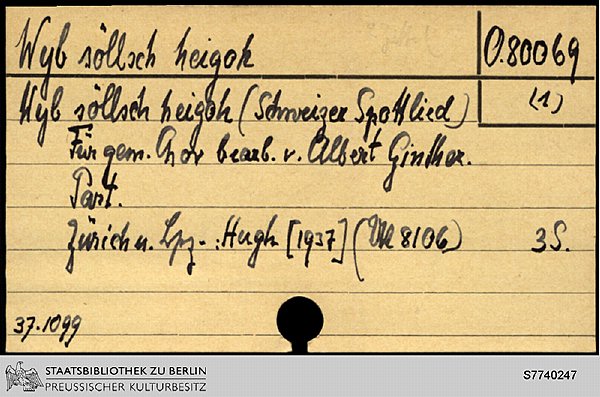 Wyb söllsch heigoh
O.80069
Wyb söllsch heigoh (Schweizer Spottlied)
(1)
Für gem. Chor bearb. v. Albert Ginther.
Part.
Zürich u. Lpz.: Hugh [1937] (8106) 3S.
37.1099
STAATSBIBLIOTHEK ZU BERLIN
PREUSSISCHER KULTURBESITZ
S7740247